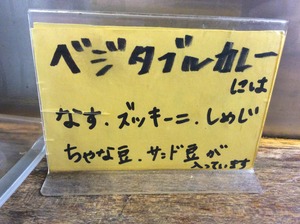 ベジタブルカレー
には
なす.ズッキーニ.しめじ
ちゃな豆.サンド豆が
入っています